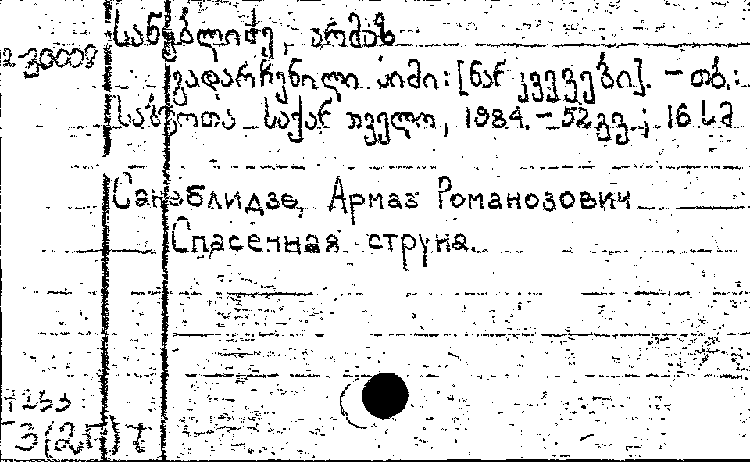 სანებლიძე, არმაზ
გადარჩენილი სიმი: [ნარკვევები]. – თბ.:
საბჭოთა საქართველო, 1984. – 52 გვ.; 16 სმ
Санеблидзе, Армаз Романозович
Спасенная струна.